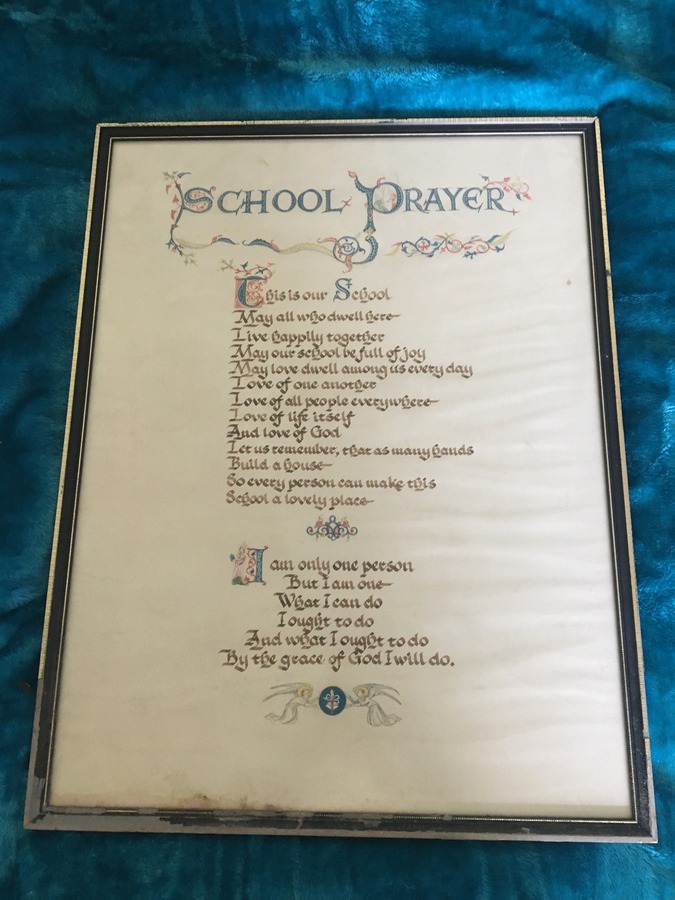 SCHOOL PRAYER
This is our School
May all who dwell here
Live happily together
May our school be full of joy
May love dwell among us every day
Love of one another
Love of all people everywhere
Love of life itself
And love of God
Let us remember, that as many hands
Build a house
So every person can make this
School a lovely place
I am only one person
But I am one
What I can do
I ought to do
And what I ought to do
By the grace of God I will do.